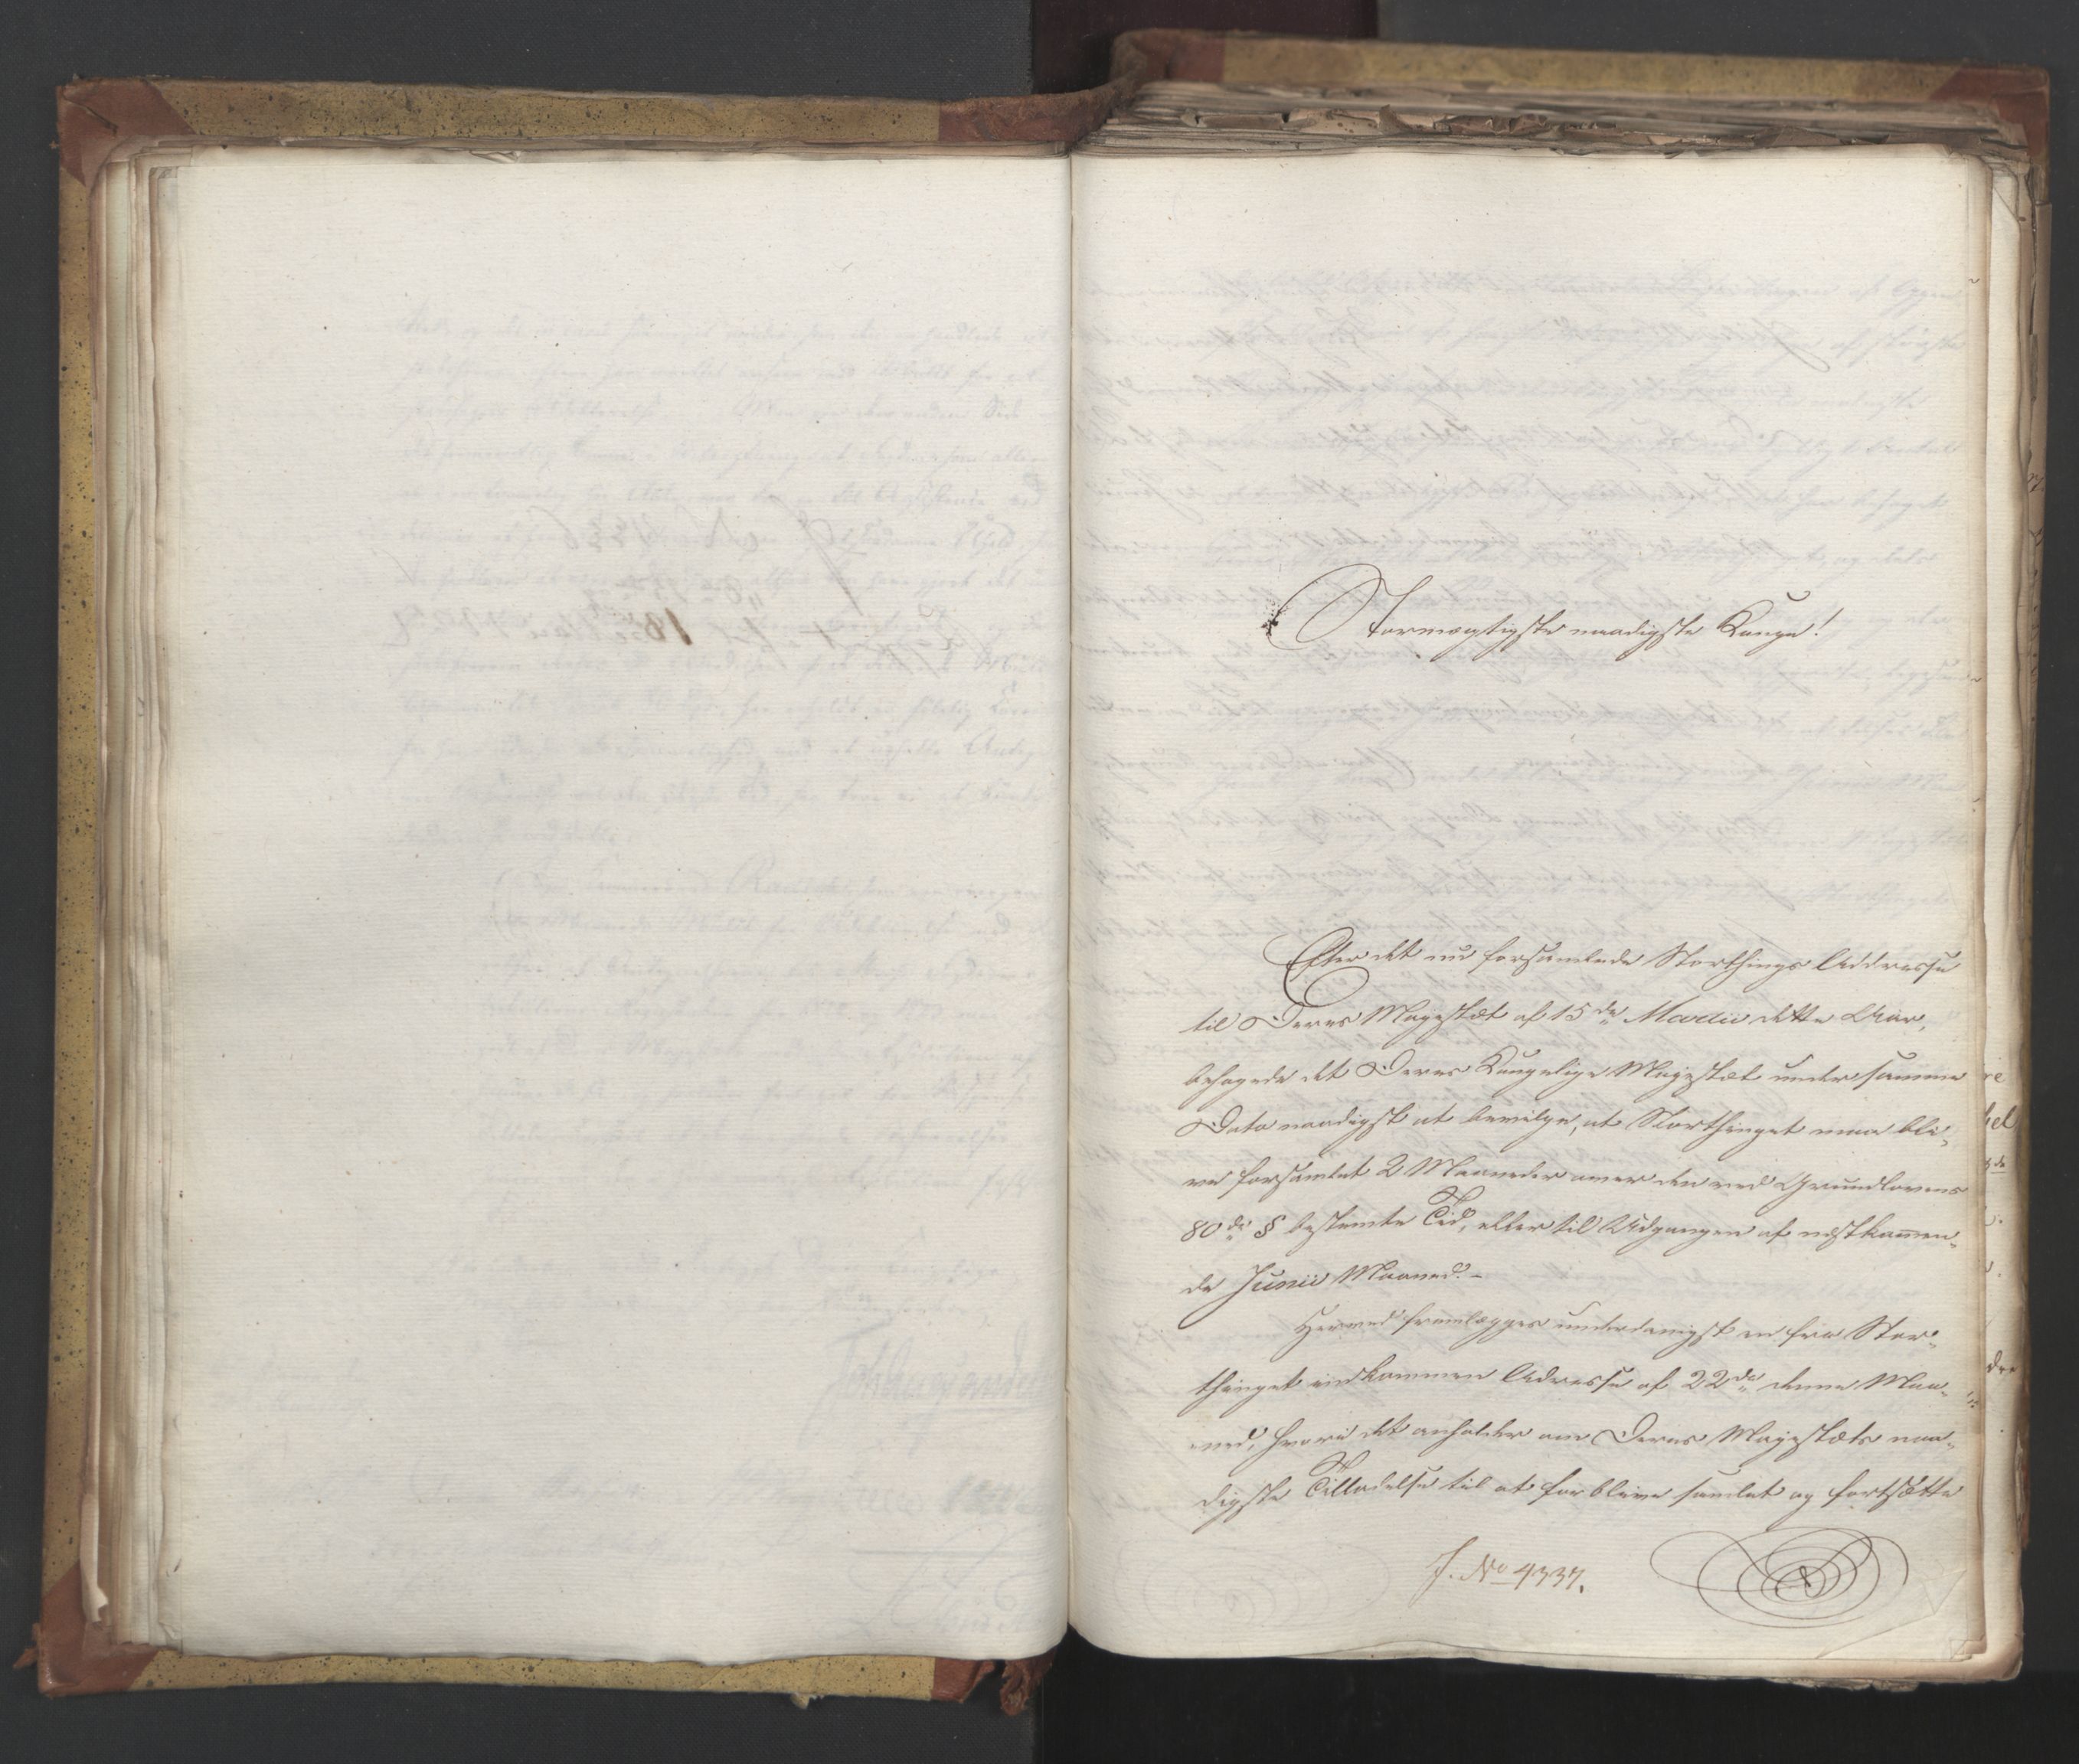 Stormægtigste naadigste Konge!
Efter det nu forsamlede Storthings Addresse
til Deres Majestæt af 15de Martii dette Aar,
behagede det Deres Kongelige Majestæt under samme
Dato naadigst at bevilge, at Storthinget maa bli-
ve forsamlet 2 Maaneder over den ved Grundlovens
80de § bestemte Tid, eller til Udgangen af næstkom̄en-
de Junii Maaned. -
Herved fremlægges underdanigst en fra Stor-
thinget indkommen Adresse af 22de denne Maa-
ned, hvori det anholder om Deres Majestæts naa-
digste Tilladelse til at forblive samlet og fortsætte
J. No 4337.